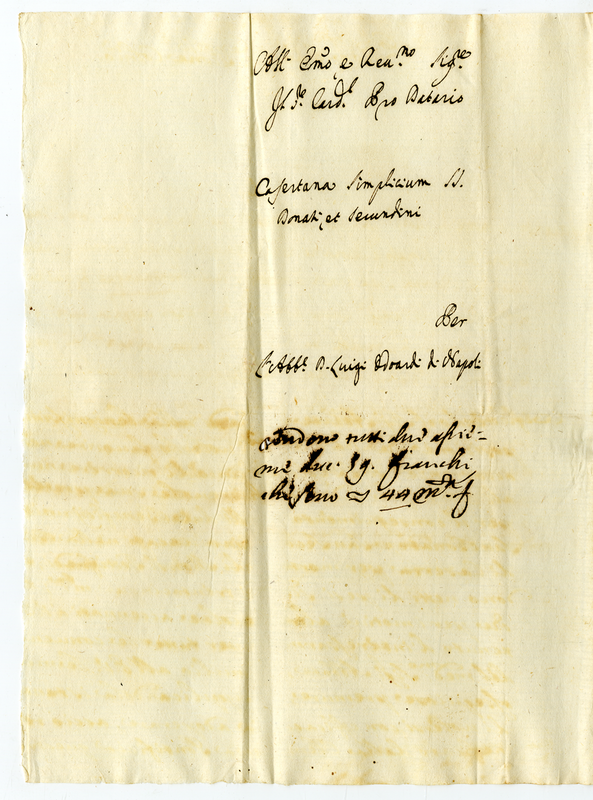 All' Emo e Reu.mo Sig.re
Il Sig.e Card.l Pro Datario
Casertana Simplicium SS.
Donati et Secundini
Per
L'Abb.e D. Luigi Edoardi di Napoli
rendono tutti due assie=
me duc. 59. franchi
che sono 44 m.ta